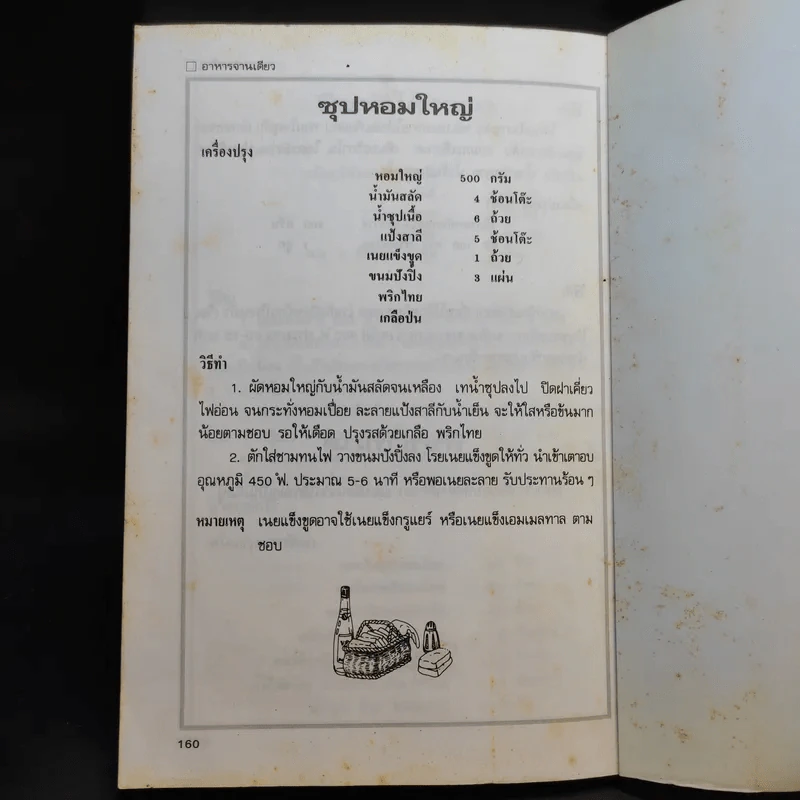 อาหารจานเดียว
ซุปหอมใหญ่
เครื่องปรุง
หอมใหญ่ 500 กรัม
น้ำมันสลัด 4 ช้อนโต๊ะ
น้ำซุปเนื้อ 6 ถ้วย
แป้งสาลี 5 ช้อนโต๊ะ
เนยแข็งขูด 1 ถ้วย
ขนมปังปิ้ง 3 แผ่น
พริกไทย
เกลือป่น
วิธีทำ
1. ผัดหอมใหญ่กับน้ำมันสลัดจนเหลือง เทน้ำซุปลงไป ปิดฝาเคี่ยว
ไฟอ่อน จนกระทั่งหอมเปื่อย ละลายแป้งสาลีกับน้ำเย็น จะให้ใสหรือข้นมาก
น้อยตามชอบ รอให้เดือด ปรุงรสด้วยเกลือ พริกไทย
2. ตักใส่ชามทนไฟ วางขนมปังปิ้งลง โรยเนยแข็งขูดให้ทั่ว นำเข้าเตาอบ
อุณหภูมิ 450 ฟ. ประมาณ 5-6 นาที หรือพอเนยละลาย รับประทานร้อน ๆ
หมายเหตุ เนยแข็งขูดอาจใช้เนยแข็งกรูแยร์ หรือเนยแข็งเอมเมลทาล ตาม
ชอบ
160